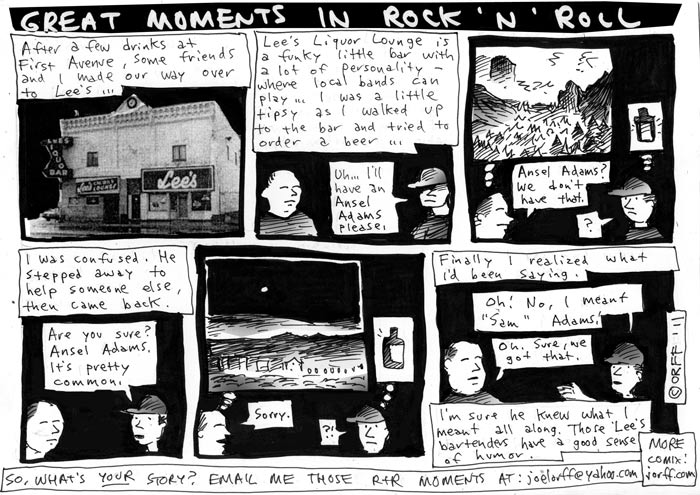 GREAT MOMENTS IN ROCK 'N' ROLL
After a few drinks at
First Avenue, some friends
and I made our way over
to Lee's ...
LEE'S
LIQUOR
BAR
Lee's
LOUNGE
Lee's
Lee's Liquor Lounge is
a funky little bar with
a lot of personality –
where local bands can
play ... I was a little
tipsy as I walked up
to the bar and tried to
order a beer ...
Uh... I'll
have an
Ansel
Adams
please.
Ansel Adams?
We don't
have that.
?
I was confused. He
stepped away to
help someone else,
then came back.
Are you sure?
Ansel Adams.
It's pretty
common.
Sorry.
?!
Finally I realized what
I'd been saying.
Oh! No, I meant
"Sam" Adams!
Oh. Sure, we
got that.
I'm sure he knew what I
meant all along. Those Lee's
bartenders have a good sense
of humor.
© ORFF '11
MORE
COMIX:
jorff.com
SO, WHAT'S YOUR STORY? EMAIL ME THOSE R+R MOMENTS AT: joelorff@yahoo.com